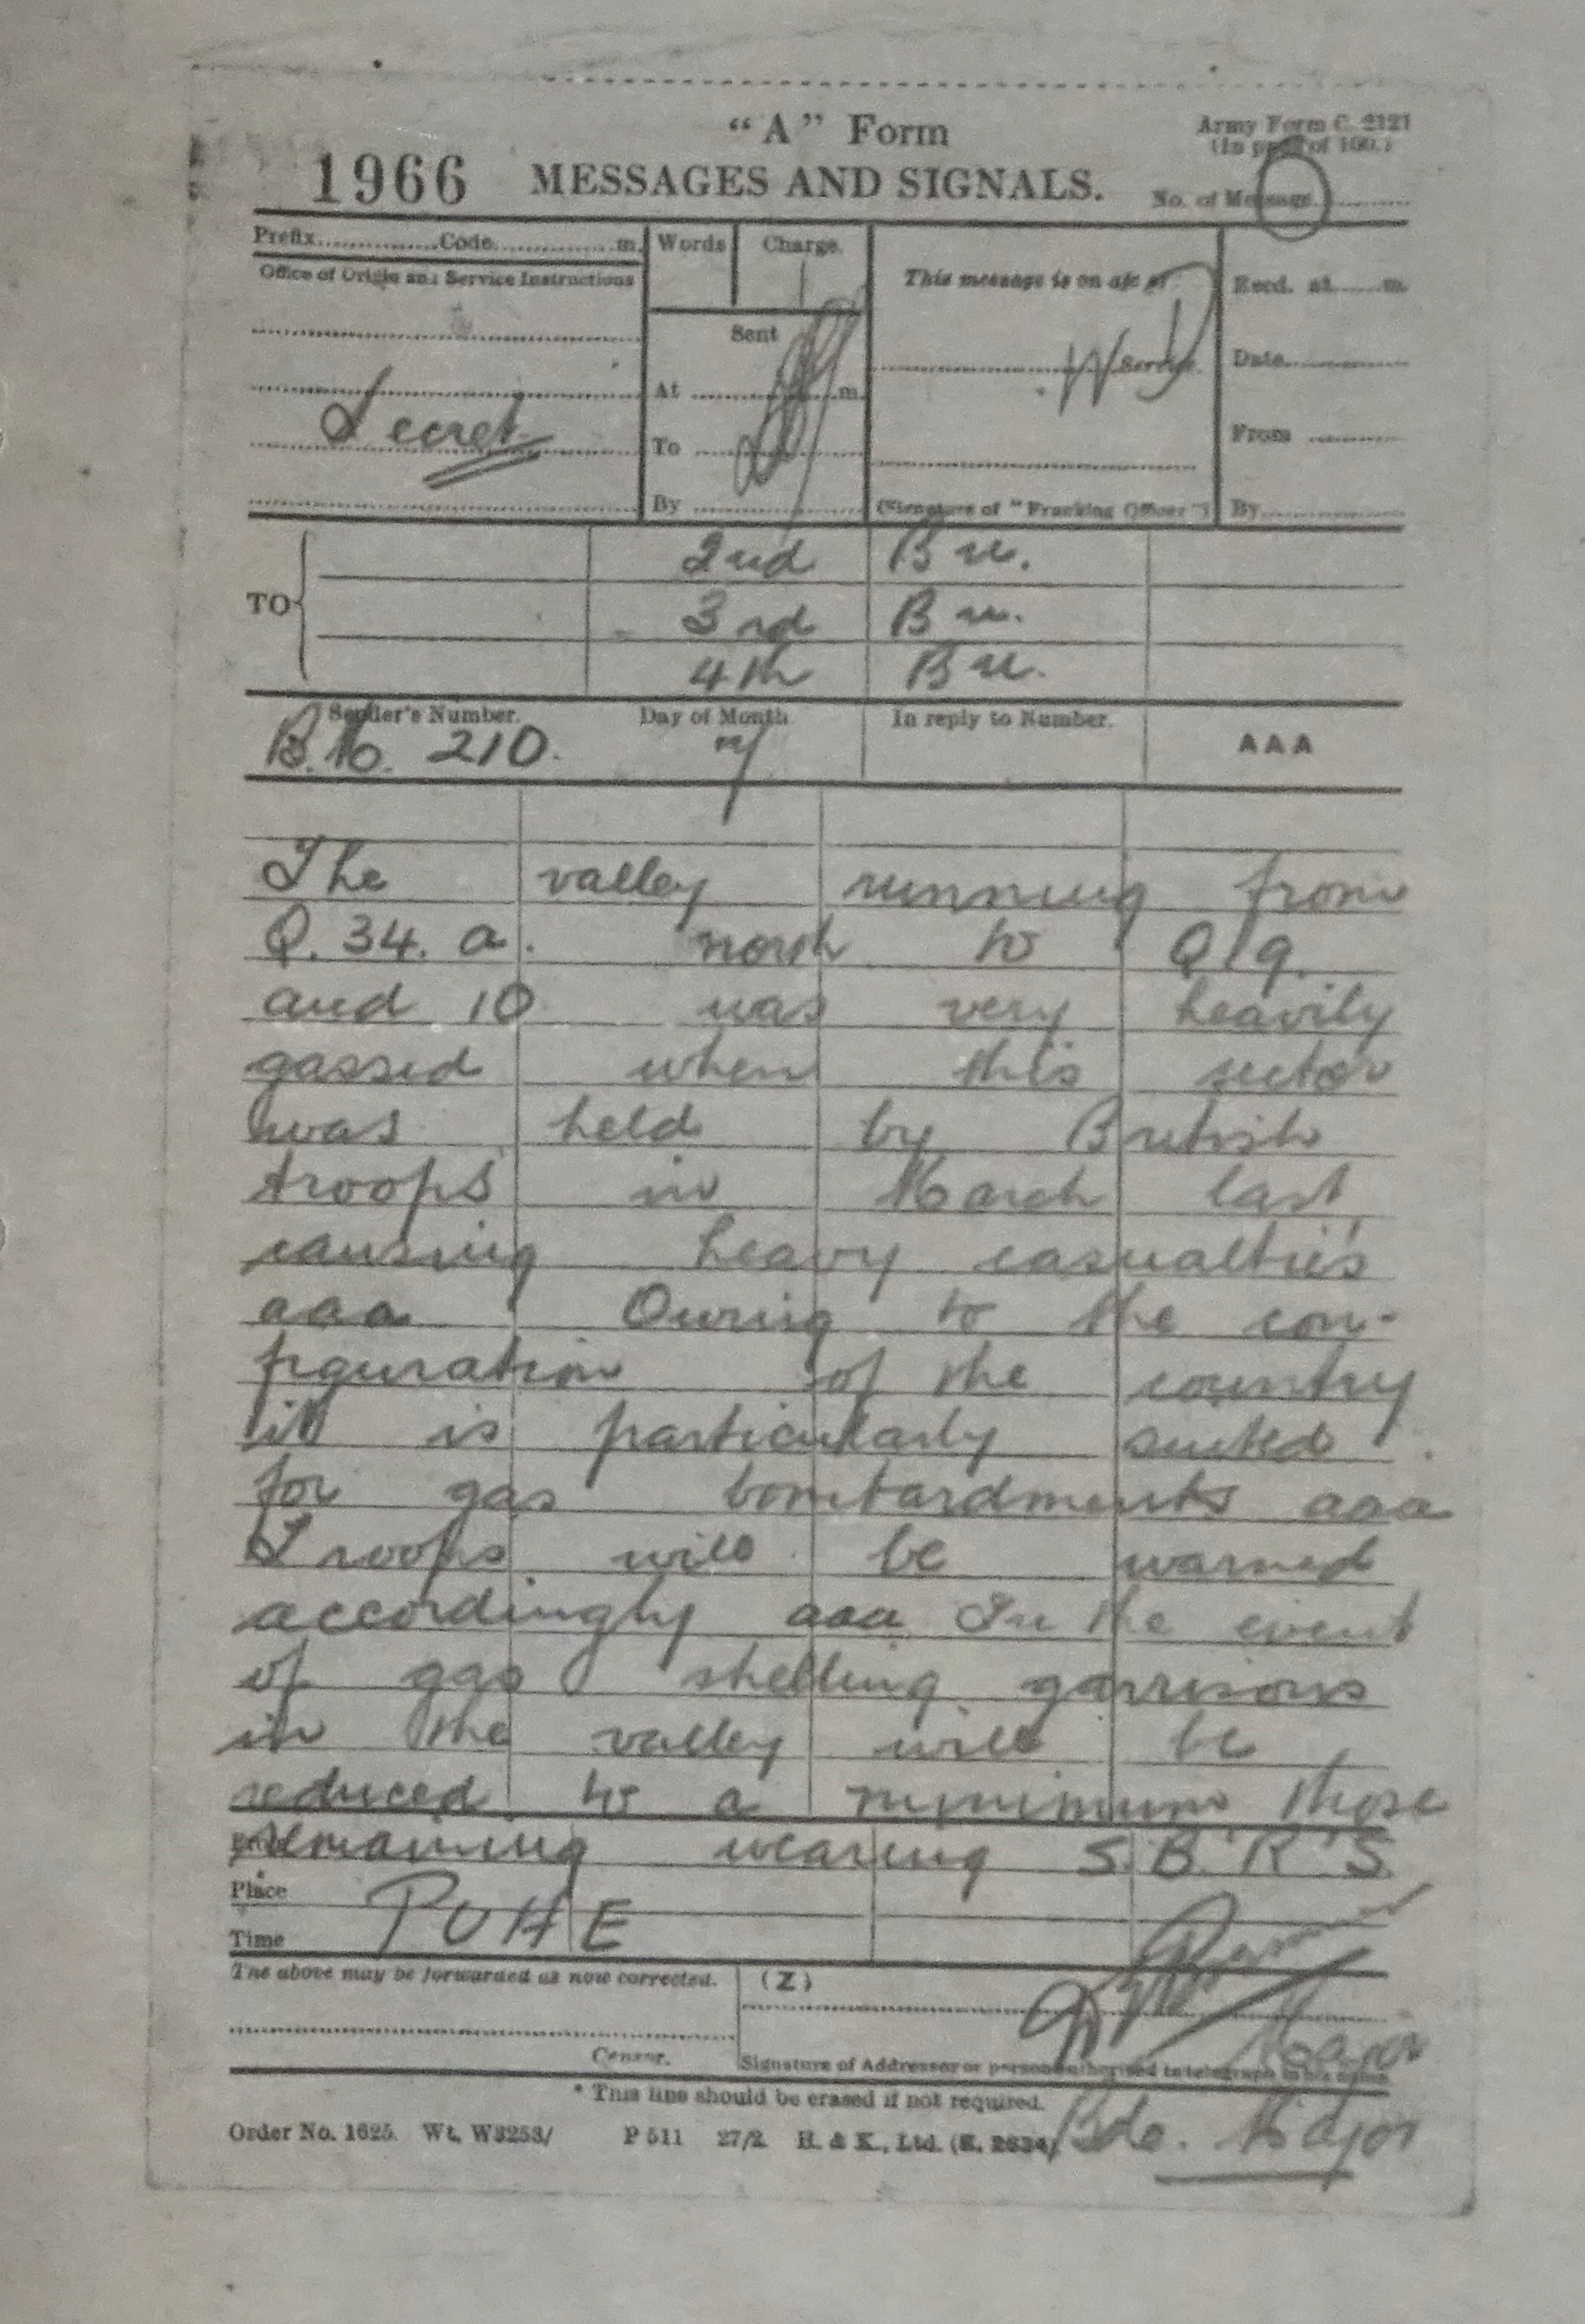 "A" Form
Army Form C. 2121
(In pads of 100.)
1966 MESSAGES AND SIGNALS. No. of Message
Prefix Code m. Words Charge.
This message is on a/c of
Recd. at m.
Office of Origin and Service Instructions
Sent
Service.
Date
At m.
Secret
To
From
By
(Signature of "Franking Officer")
By
2nd Bn.
TO 3rd Bn.
4th Bn.
Sender's Number. Day of Month In reply to Number. AAA
B.M. 210. 7
The valley running from
Q. 34. a. north to Q 9.
and 10 was very heavily
gassed when this sector
was held by British
troops in March last
causing heavy casualties
aaa Owing to the con-
figuration of the country
it is particularly suited
for gas bombardments aaa
Troops will be warned
accordingly aaa In the event
of gas shelling garrisons
in the valley will be
reduced to a minimum those
remaining wearing S.B.R'S
Place
PUHE
Time
The above may be forwarded as now corrected. (Z)
Major
Censor. Signature of Addressor or person authorised to telegraph in his name.
* This line should be erased if not required.
Order No. 1625. Wt. W3253/ P 511 27/2. H. & K., Ltd. (E. 2634)
Bde. Major